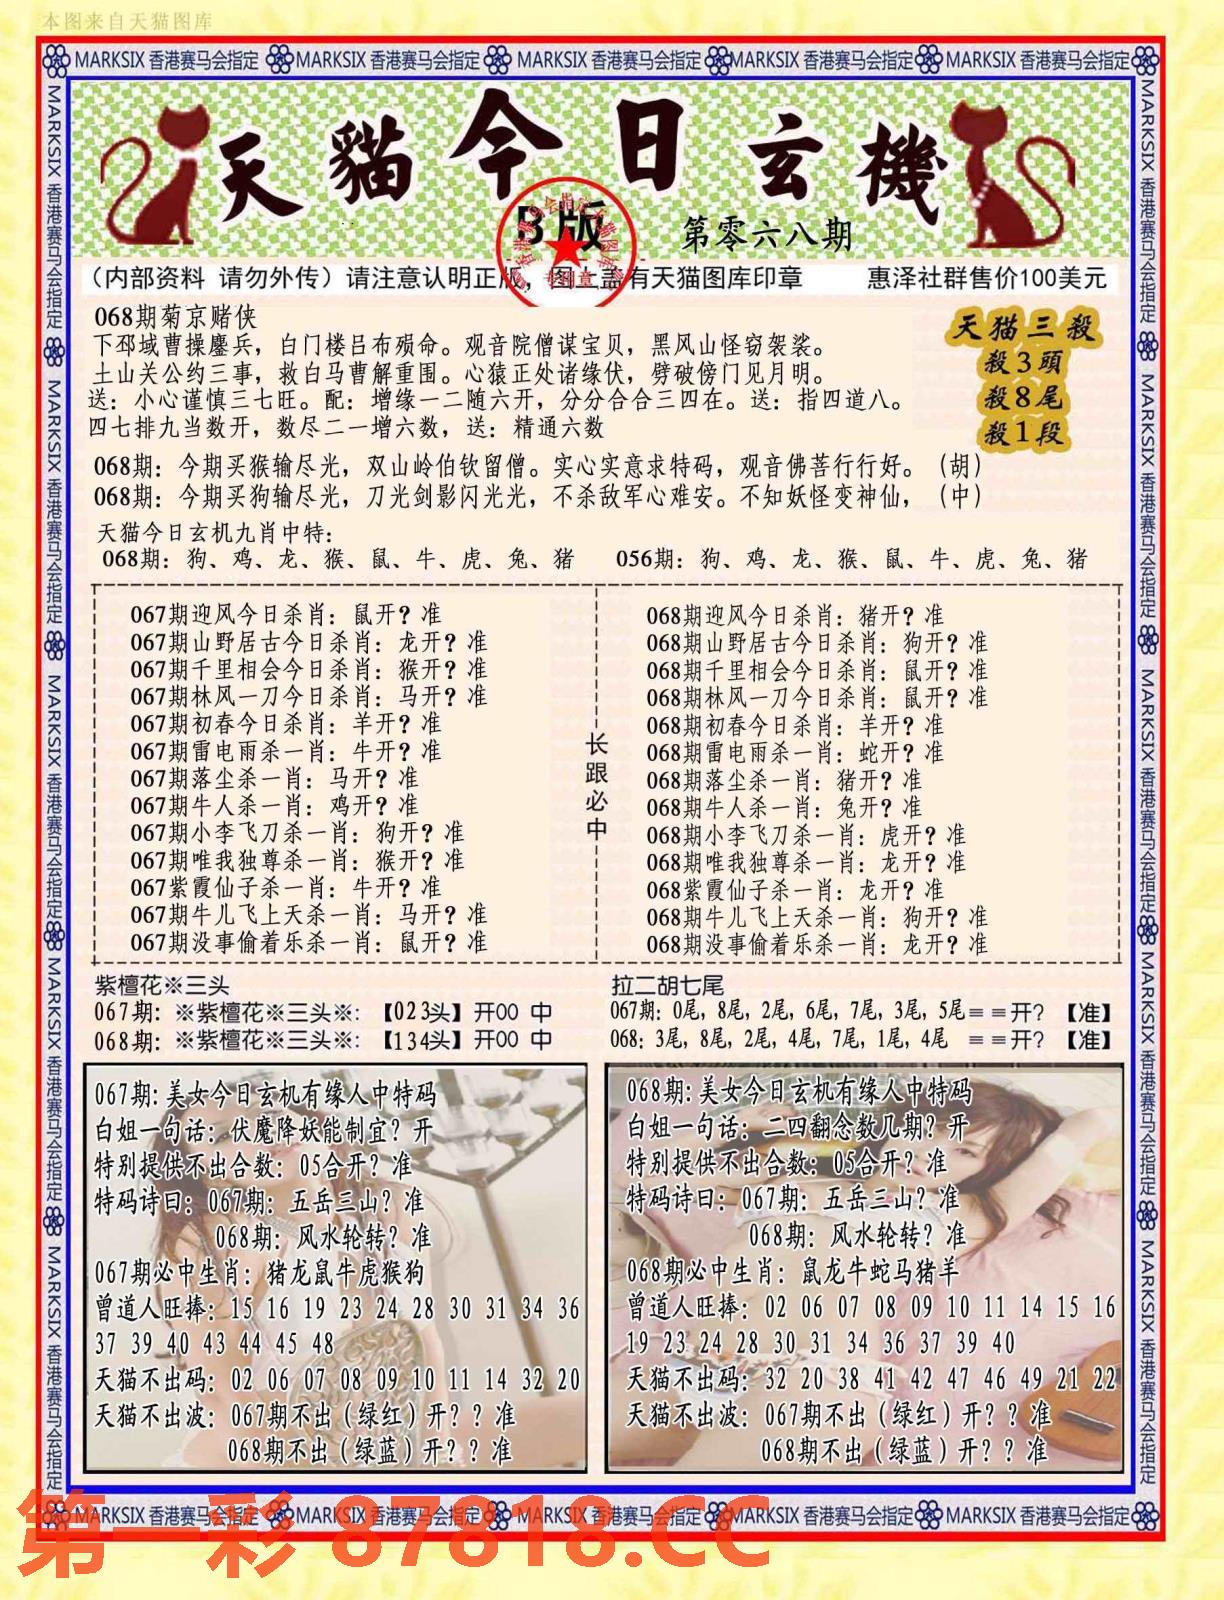 本图来自天猫图库
MARKSIX 香港赛马会指定 MARKSIX 香港赛马会指定 MARKSIX 香港赛马会指定 MARKSIX 香港赛马会指定 MARKSIX 香港赛马会指定
天貓今日玄機
B版
第零六八期
（内部资料 请勿外传）请注意认明正版，图上盖有天猫图库印章 惠泽社群售价100美元
专用章
068期菊京赌侠
下邳域曹操鏖兵，白门楼吕布殒命。观音院僧谋宝贝，黑风山怪窃袈裟。
土山关公约三事，救白马曹解重围。心猿正处诸缘伏，劈破傍门见月明。
送：小心谨慎三七旺。配：增缘一二随六开，分分合合三四在。送：指四道八。
四七排九当数开，数尽二一增六数，送：精通六数
天猫三殺
殺3頭
殺8尾
殺1段
068期：今期买猴输尽光，双山岭伯钦留僧。实心实意求特码，观音佛菩行行好。（胡）
068期：今期买狗输尽光，刀光剑影闪光光，不杀敌军心难安。不知妖怪变神仙，（中）
天猫今日玄机九肖中特：
068期：狗、鸡、龙、猴、鼠、牛、虎、兔、猪 056期：狗、鸡、龙、猴、鼠、牛、虎、兔、猪
067期迎风今日杀肖：鼠开？准
067期山野居古今日杀肖：龙开？准
067期千里相会今日杀肖：猴开？准
067期林风一刀今日杀肖：马开？准
067期初春今日杀肖：羊开？准
067期雷电雨杀一肖：牛开？准
067期落尘杀一肖：马开？准
067期牛人杀一肖：鸡开？准
067期小李飞刀杀一肖：狗开？准
067期唯我独尊杀一肖：猴开？准
067紫霞仙子杀一肖：牛开？准
067期牛儿飞上天杀一肖：马开？准
067期没事偷着乐杀一肖：鼠开？准
长跟必中
068期迎风今日杀肖：猪开？准
068期山野居古今日杀肖：狗开？准
068期千里相会今日杀肖：鼠开？准
068期林风一刀今日杀肖：鼠开？准
068期初春今日杀肖：羊开？准
068期雷电雨杀一肖：蛇开？准
068期落尘杀一肖：猪开？准
068期牛人杀一肖：兔开？准
068期小李飞刀杀一肖：虎开？准
068期唯我独尊杀一肖：龙开？准
068紫霞仙子杀一肖：龙开？准
068期牛儿飞上天杀一肖：狗开？准
068期没事偷着乐杀一肖：龙开？准
紫檀花※三头
067期：※紫檀花※三头※：【023头】开00 中
068期：※紫檀花※三头※：【134头】开00 中
拉二胡七尾
067期：0尾，8尾，2尾，6尾，7尾，3尾，5尾＝＝开？【准】
068：3尾，8尾，2尾，4尾，7尾，1尾，4尾 ＝＝开？【准】
067期：美女今日玄机有缘人中特码
白姐一句话：伏魔降妖能制宜？开
特别提供不出合数：05合开？准
特码诗曰：067期：五岳三山？准
068期：风水轮转？准
067期必中生肖：猪龙鼠牛虎猴狗
曾道人旺捧：15 16 19 23 24 28 30 31 34 36
37 39 40 43 44 45 48
天猫不出码：02 06 07 08 09 10 11 14 32 20
天猫不出波：067期不出（绿红）开？？准
068期不出（绿蓝）开？？准
068期：美女今日玄机有缘人中特码
白姐一句话：二四翻念数几期？开
特别提供不出合数：05合开？准
特码诗曰：067期：五岳三山？准
068期：风水轮转？准
068期必中生肖：鼠龙牛蛇马猪羊
曾道人旺捧：02 06 07 08 09 10 11 14 15 16
19 23 24 28 30 31 34 36 37 39 40
天猫不出码：32 20 38 41 42 47 46 49 21 22
天猫不出波：067期不出（绿红）开？？准
068期不出（绿蓝）开？？准
MARKSIX 香港赛马会指定 MARKSIX 香港赛马会指定 MARKSIX 香港赛马会指定 MARKSIX 香港赛马会指定 MARKSIX 香港赛马会指定
MARKSIX 香港赛马会指定 MARKSIX 香港赛马会指定 MARKSIX 香港赛马会指定 MARKSIX 香港赛马会指定 MARKSIX 香港赛马会指定
MARKSIX 香港赛马会指定 MARKSIX 香港赛马会指定 MARKSIX 香港赛马会指定 MARKSIX 香港赛马会指定 MARKSIX 香港赛马会指定
第一彩 87818.CC